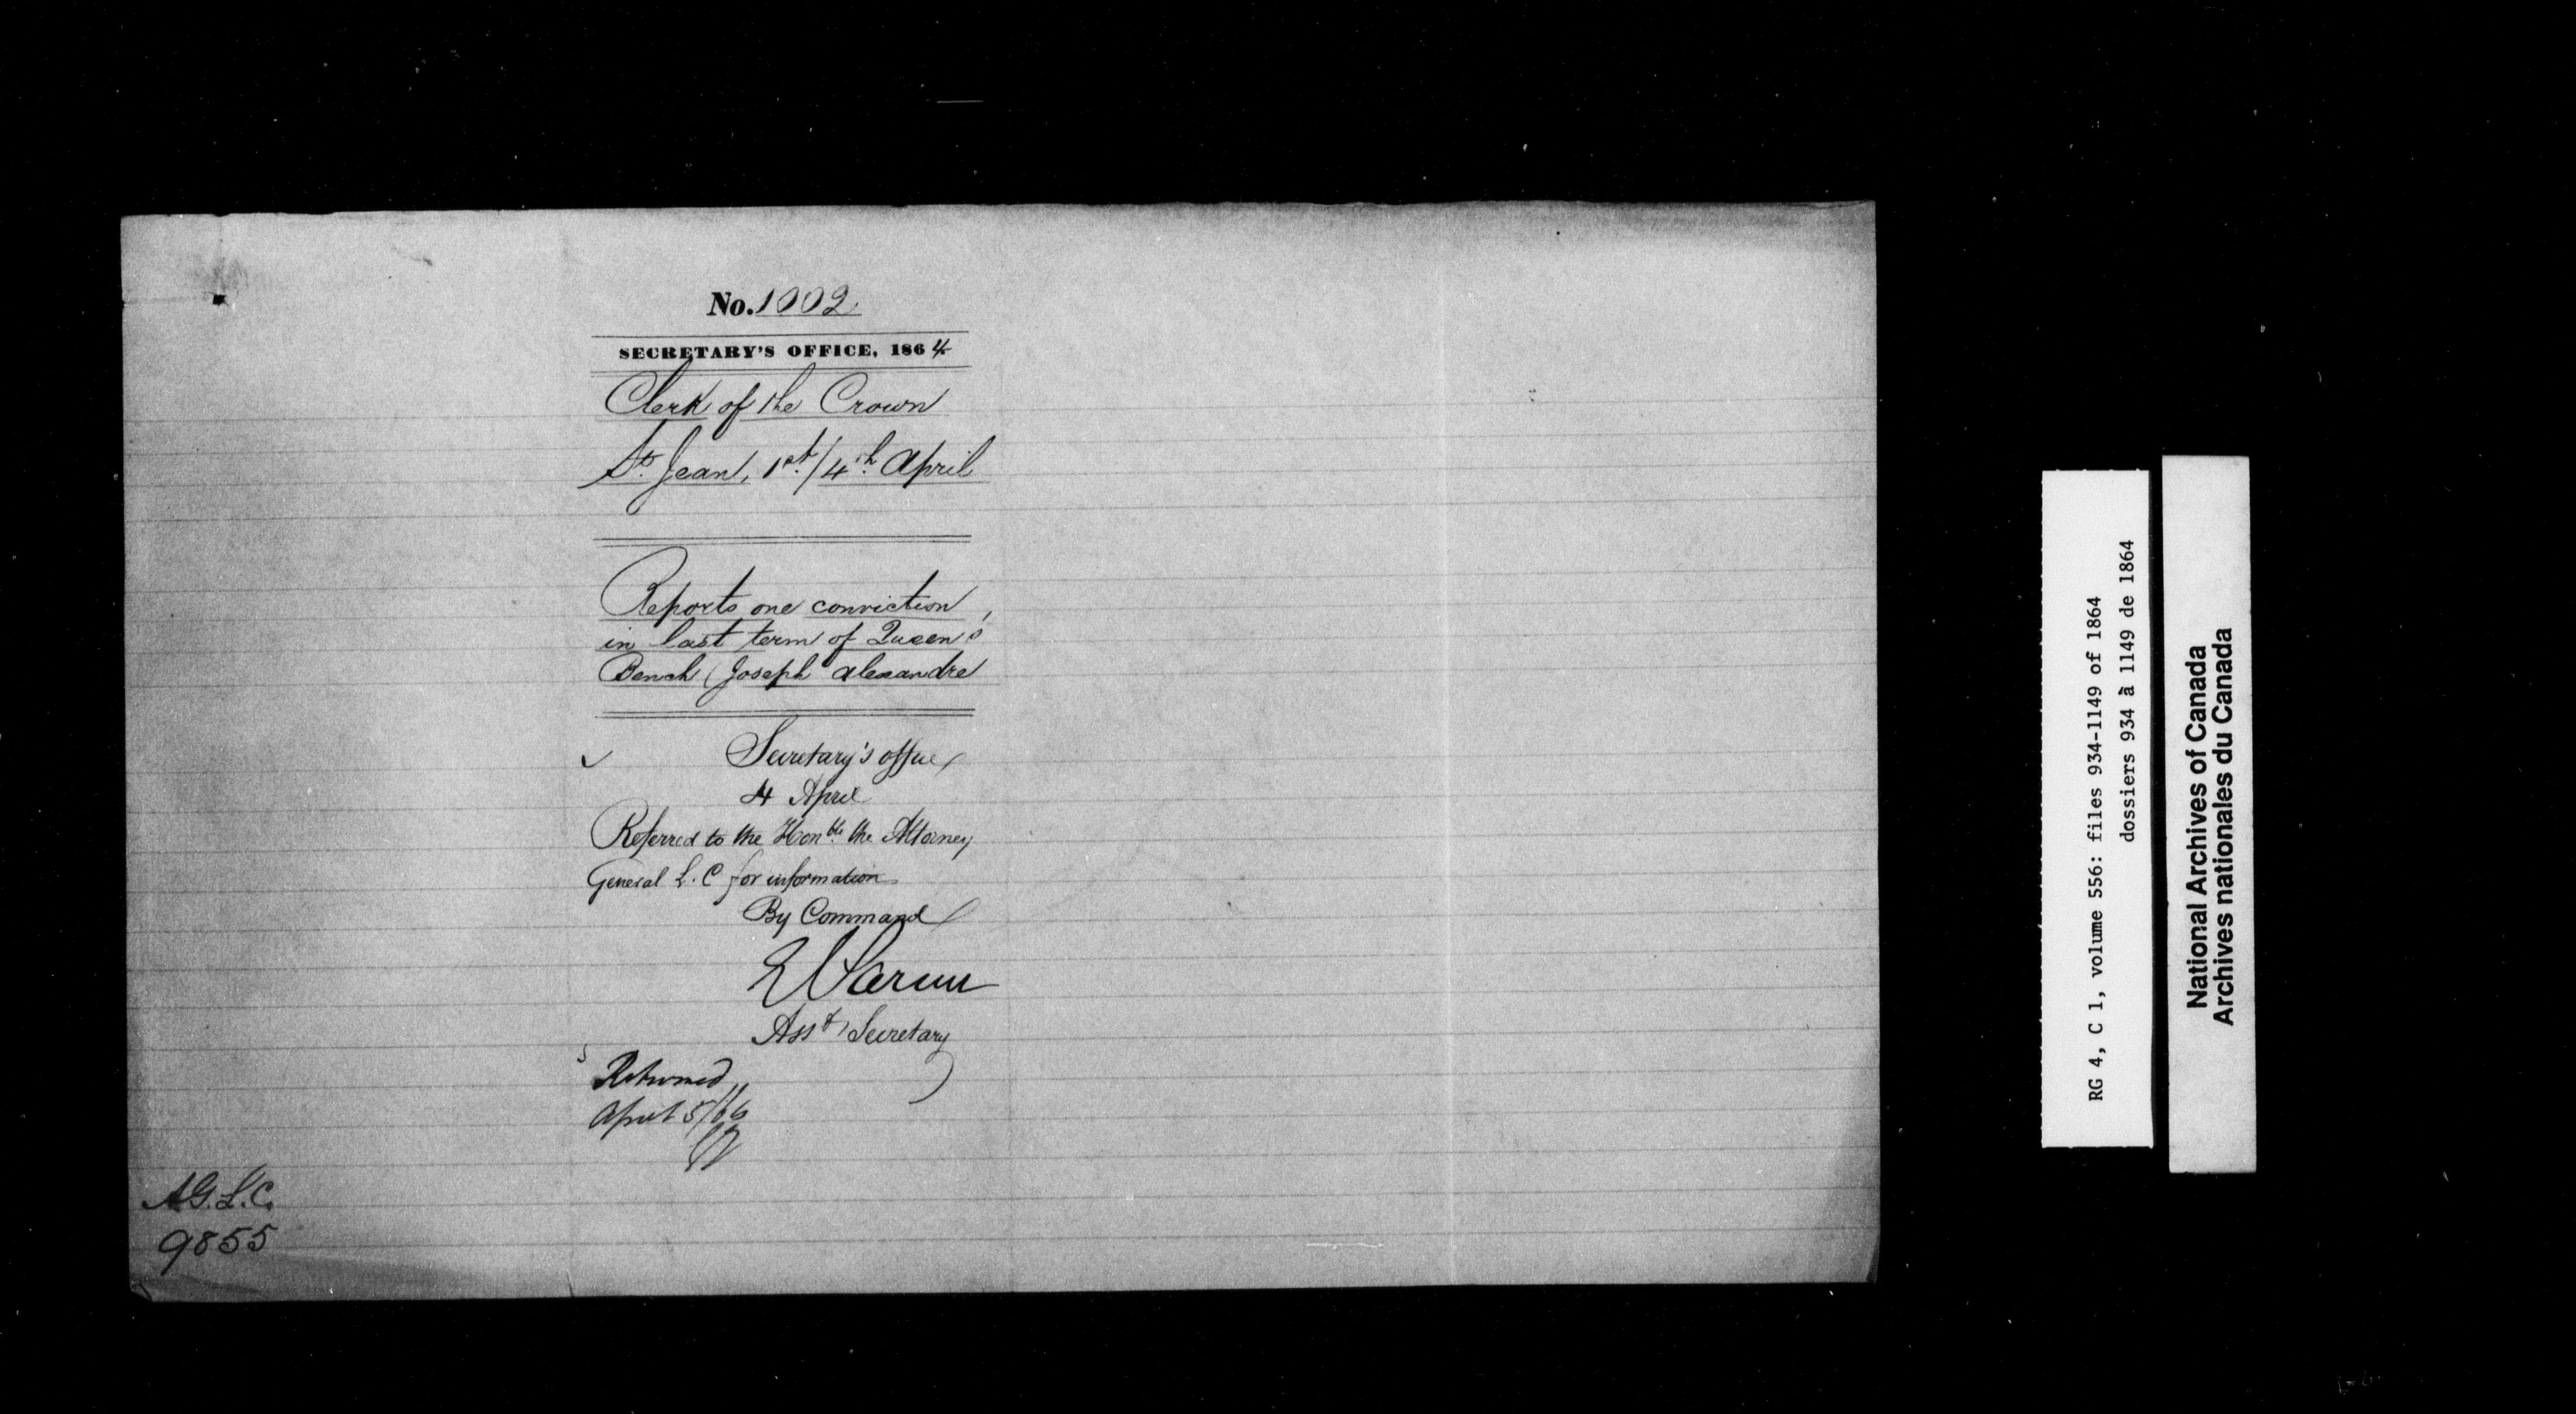 No. 1002
SECRETARY'S OFFICE, 1864
Clerk of the Crown
St. Jean, 1st./4th. April
Reports one conviction
in last term of Queen's
Bench (Joseph Alexandre
Secretary's office
4 April
Referred to the Honble. the Attorney
General L. C for information
By Command
Asst Secretary
Returned
April 5/66
A.G. L.C.
9855
RG 4, C 1, volume 556: files 934-1149 of 1864
dossiers 934 à 1149 de 1864
National Archives of Canada
Archives nationales du Canada